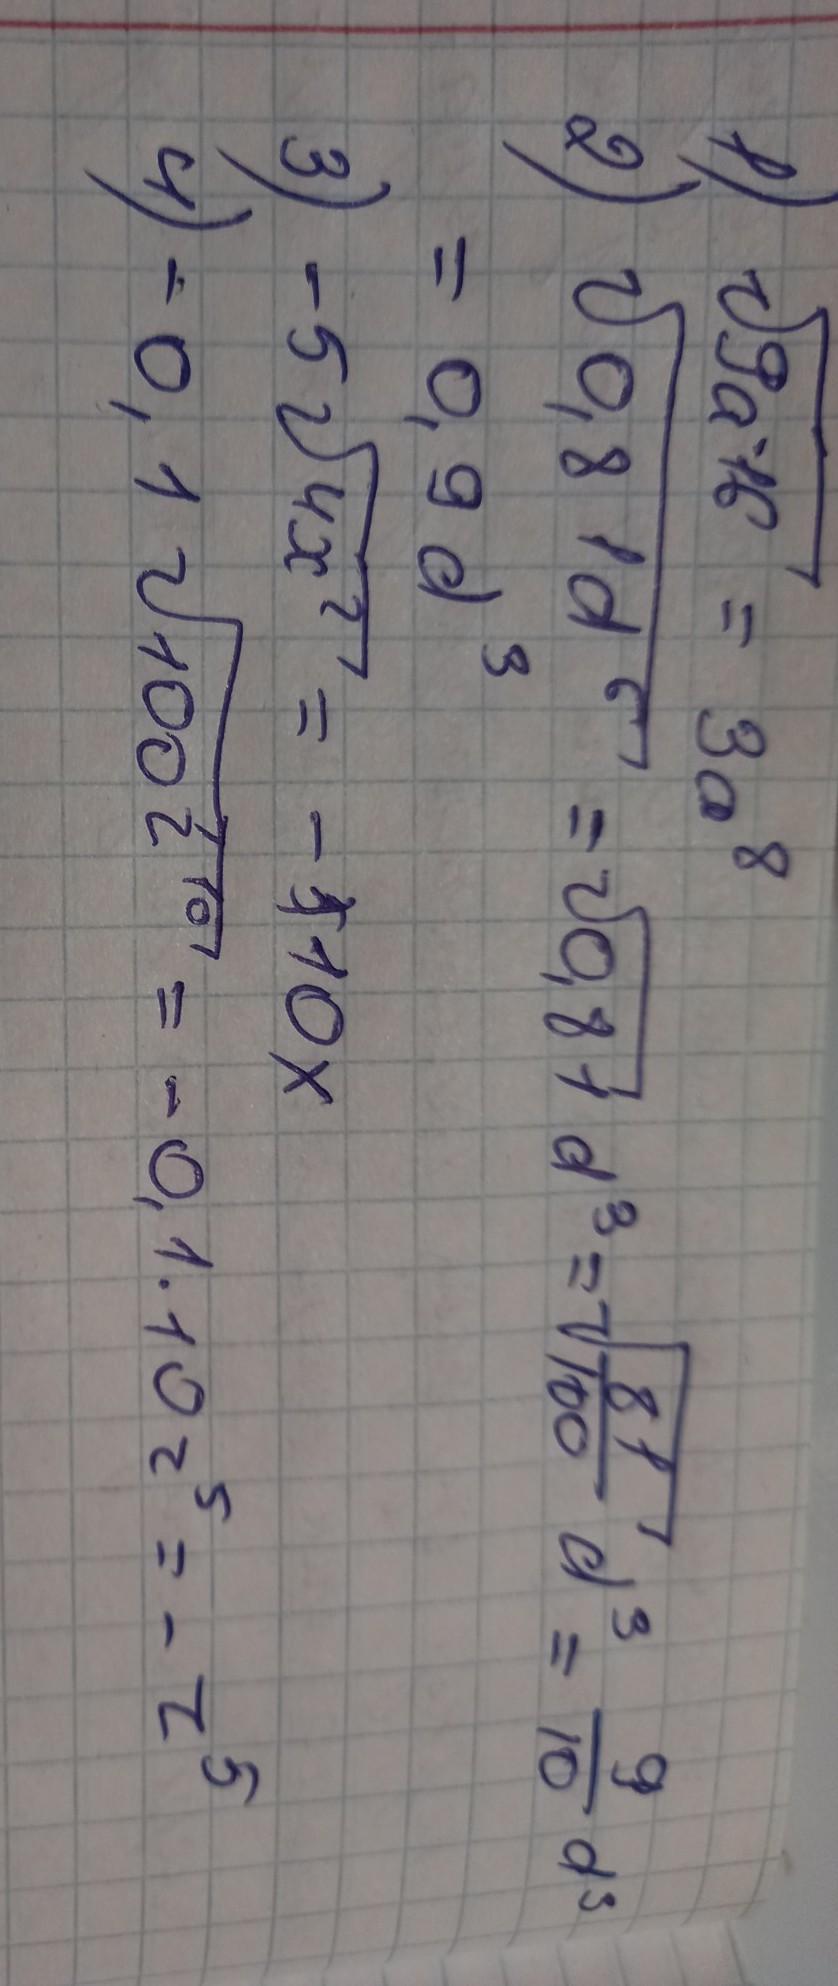 1) √9a¹⁶ = 3a⁸
2) √0,81d⁶ = √0,81 d³ = √81/100 d³ = 9/10 d³
= 0,9d³
3) -5√4x² = -10x
4) -0,1√100z¹⁰ = -0,1·10z⁵ = -z⁵